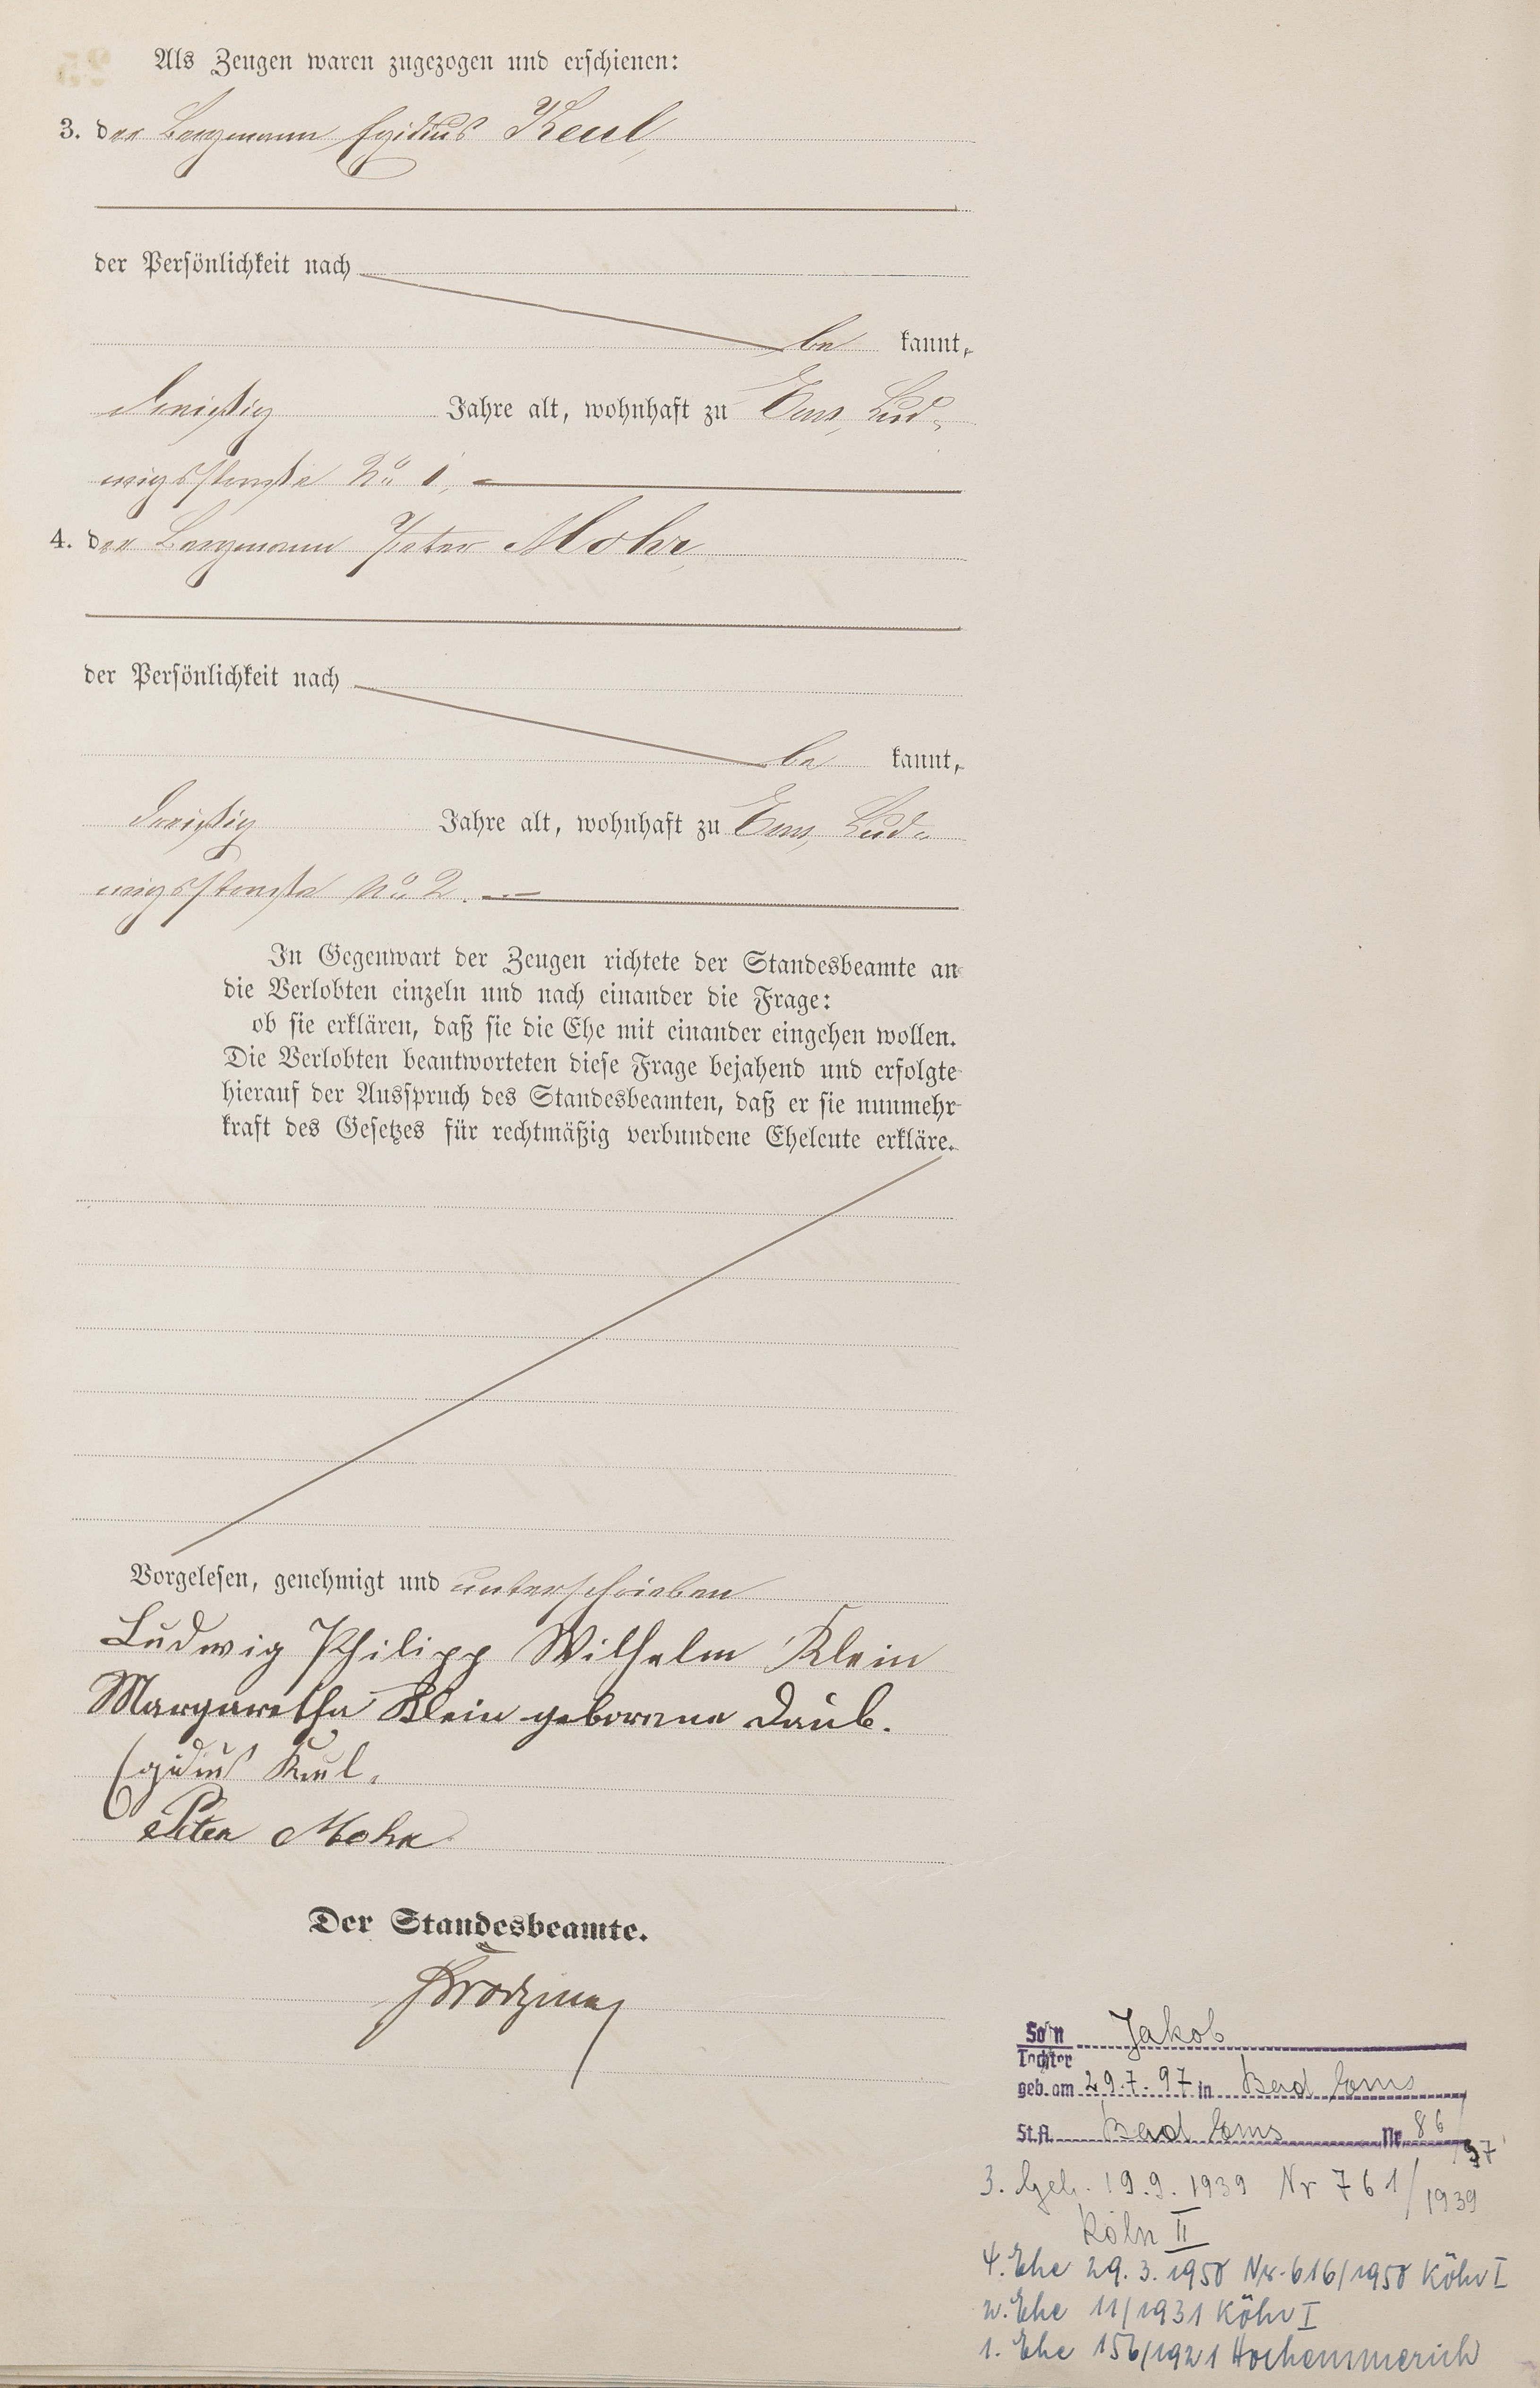 Als Zeugen waren zugezogen und erschienen:
3. der Bergmann Egidius Keul,
der Persönlichkeit nach
be kannt,
dreißig Jahre alt, wohnhaft zu Ems, Lud-
wigsstraße No 1,
4. der Bergmann Peter Mohr,
der Persönlichkeit nach
be kannt,
dreißig Jahre alt, wohnhaft zu Ems, Lud-
wigsstraße No 2.
In Gegenwart der Zeugen richtete der Standesbeamte an
die Verlobten einzeln und nach einander die Frage:
ob sie erklären, daß sie die Ehe mit einander eingehen wollen.
Die Verlobten beantworteten diese Frage bejahend und erfolgte
hierauf der Ausspruch des Standesbeamten, daß er sie nunmehr
kraft des Gesetzes für rechtmäßig verbundene Eheleute erkläre.
Vorgelesen, genehmigt und unterschrieben
Ludwig Philipp Wilhelm Klein
Margaretha Klein geborene Daub.
Egidius Keul.
Peter Mohr
Der Standesbeamte.
Sohn Jakob
Tochter
geb. am 29.7.97 in Bad Ems
St.A. Bad Ems Nr. 86/97
3. 19.9.1939 Nr 761/1939
Köln II
4. Ehe 29.3.1950 Nr. 616/1950 Köln I
2. Ehe 11/1931 Köln I
1. Ehe 156/1921 Hochemmerich